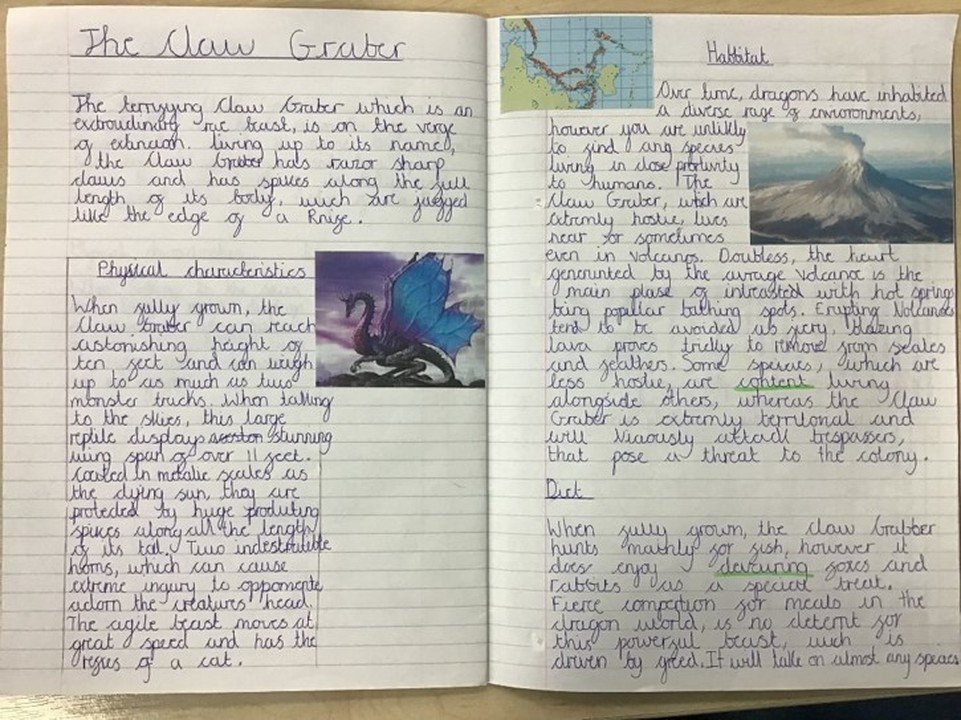 The Claw Graber
The terrifying Claw Graber which is an
extroudinary rae beast, is on the verge
of extincion. living up to its name,
the Claw Graber has razor sharp
claws and has spikes along the full
length of its body, wuch are jagged
like the edge of a Knife.
Physical characteristics
When fully grown, the
Claw Graber can reach
astonishing height of
ten feet and can weigh
up to as much as two
monster trucks. When taking
to the skies, this large
reptile displays stunning
wing span of over 11 feet.
Coated in metalic scales as
the dying sun, they are
proteded by huge produting
spikes along all the length
of its tail. Two indestrutible
horns, which can cause
extreme ingury to opponente
adorn the creatures head.
The agile beast moves at
great speed and has the
reflies of a cat.
Habbitat
Over time, dragons have inhabited
a diverse rage of envioronments,
however you are unlikly
to find ang species
living in close protivity
to humans. The
Claw Graber, which are
extremly hostie, lives
near or sometimes
even in volcanos. Doubless, the heart
generunted by the avrage volcanoe is the
main plase of intreasted with hot springs
being popular bathing spots. Erupting Volcanoes
tend to be avoided as fiery, blazing
lava proves tricky to remove from scales
and feathers. Some speices, which are
less hostie, are content living
alongside others, whereas the Claw
Graber is extremly territorial and
will viaously attack trespassers,
that pose a threat to the colony.
Diet
When fully grown, the Claw Grabber
hunts mainly for fish, however it
does enjoy devouring foxes and
rabbits as a special treat.
Fierce compeition for meals in the
dragon world, is no deternt for
this powerful beast, wich is
driven by greed. It will take on almost any speices